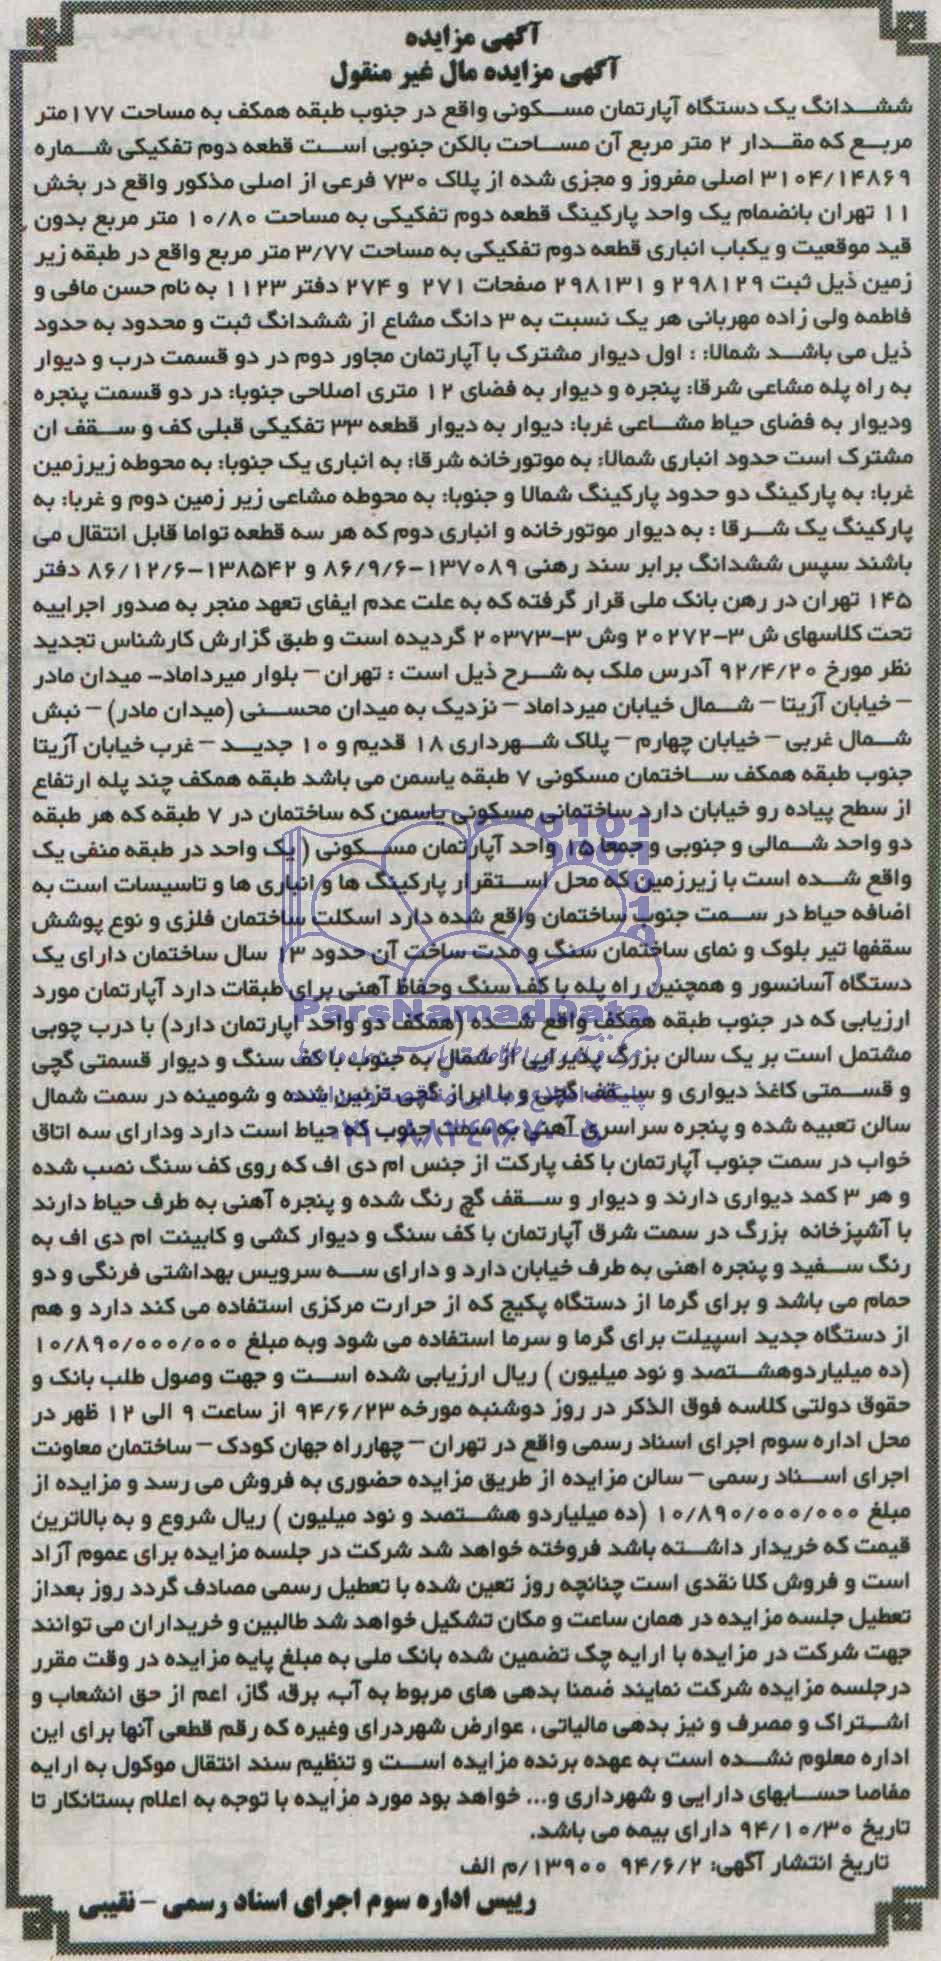 آگهی مزایده
آگهی مزایده مال غیر منقول
ششدانگ یک دستگاه آپارتمان مسکونی واقع در جنوب طبقه همکف به مساحت ۱۷۷متر
مربع که مقدار ۲ متر مربع آن مساحت بالکن جنوبی است قطعه دوم تفکیکی شماره
۳۱۰۴/۱۴۸۶۹ اصلی مفروز و مجزی شده از پلاک ۷۳۰ فرعی از اصلی مذکور واقع در بخش
۱۱ تهران بانضمام یک واحد پارکینگ قطعه دوم تفکیکی به مساحت ۱۰/۸۰ متر مربع بدون
قید موقعیت و یکباب انباری قطعه دوم تفکیکی به مساحت ۳/۷۷ متر مربع واقع در طبقه زیر
زمین ذیل ثبت ۲۹۸۱۲۹ و ۲۹۸۱۳۱ صفحات ۲۷۱ و ۲۷۴ دفتر ۱۱۲۳ به نام حسن مافی و
فاطمه ولی زاده مهربانی هر یک نسبت به ۳ دانگ مشاع از ششدانگ ثبت و محدود به حدود
ذیل می باشد شمالا: : اول دیوار مشترک با آپارتمان مجاور دوم در دو قسمت درب و دیوار
به راه پله مشاعی شرقا: پنجره و دیوار به فضای ۱۲ متری اصلاحی جنوبا: در دو قسمت پنجره
ودیوار به فضای حیاط مشاعی غربا: دیوار به دیوار قطعه ۳۳ تفکیکی قبلی کف و سقف ان
مشترک است حدود انباری شمالا: به موتورخانه شرقا: به انباری یک جنوبا: به محوطه زیرزمین
غربا: به پارکینگ دو حدود پارکینگ شمالا و جنوبا: به محوطه مشاعی زیر زمین دوم و غربا: به
پارکینگ یک شرقا : به دیوار موتورخانه و انباری دوم که هر سه قطعه تواما قابل انتقال می
باشند سپس ششدانگ برابر سند رهنی ۱۳۷۰۸۹-۸۶/۹/۶ و ۱۳۸۵۴۲-۸۶/۱۲/۶ دفتر
۱۴۵ تهران در رهن بانک ملی قرار گرفته که به علت عدم ایفای تعهد منجر به صدور اجراییه
تحت کلاسهای ش ۳-۲۰۲۷۲ وش ۳-۲۰۳۷۳ گردیده است و طبق گزارش کارشناس تجدید
نظر مورخ ۹۲/۴/۲۰ آدرس ملک به شرح ذیل است : تهران – بلوار میرداماد- میدان مادر
– خیابان آزیتا – شمال خیابان میرداماد – نزدیک به میدان محسنی (میدان مادر) – نبش
شمال غربی – خیابان چهارم – پلاک شهرداری ۱۸ قدیم و ۱۰ جدید – غرب خیابان آزیتا
جنوب طبقه همکف ساختمان مسکونی ۷ طبقه یاسمن می باشد طبقه همکف چند پله ارتفاع
از سطح پیاده رو خیابان دارد ساختمانی مسکونی یاسمن که ساختمان در ۷ طبقه که هر طبقه
دو واحد شمالی و جنوبی و جمعا ۱۵ واحد آپارتمان مسکونی ( یک واحد در طبقه منفی یک
واقع شده است با زیرزمین که محل استقرار پارکینگ ها و انباری ها و تاسیسات است به
اضافه حیاط در سمت جنوب ساختمان واقع شده دارد اسکلت ساختمان فلزی و نوع پوشش
سقفها تیر بلوک و نمای ساختمان سنگ و مدت ساخت آن حدود ۱۳ سال ساختمان دارای یک
دستگاه آسانسور و همچنین راه پله با کف سنگ وحفاظ آهنی برای طبقات دارد آپارتمان مورد
ارزیابی که در جنوب طبقه همکف واقع شده (همکف دو واحد اپارتمان دارد) با درب چوبی
مشتمل است بر یک سالن بزرگ پذیرایی از شمال به جنوب با کف سنگ و دیوار قسمتی گچی
و قسمتی کاغذ دیواری و سقف گچی و با ابراز گچی تزئین شده و شومینه در سمت شمال
سالن تعبیه شده و پنجره سراسری آهنی به سمت جنوب که حیاط است دارد ودارای سه اتاق
خواب در سمت جنوب آپارتمان با کف پارکت از جنس ام دی اف که روی کف سنگ نصب شده
و هر ۳ کمد دیواری دارند و دیوار و سقف گچ رنگ شده و پنجره آهنی به طرف حیاط دارند
با آشپزخانه بزرگ در سمت شرق آپارتمان با کف سنگ و دیوار کشی و کابینت ام دی اف به
رنگ سفید و پنجره اهنی به طرف خیابان دارد و دارای سه سرویس بهداشتی فرنگی و دو
حمام می باشد و برای گرما از دستگاه پکیج که از حرارت مرکزی استفاده می کند دارد و هم
از دستگاه جدید اسپیلت برای گرما و سرما استفاده می شود وبه مبلغ ۱۰/۸۹۰/۰۰۰/۰۰۰
(ده میلیاردوهشتصد و نود میلیون ) ریال ارزیابی شده است و جهت وصول طلب بانک و
حقوق دولتی کلاسه فوق الذکر در روز دوشنبه مورخه ۹۴/۶/۲۳ از ساعت ۹ الی ۱۲ ظهر در
محل اداره سوم اجرای اسناد رسمی واقع در تهران – چهارراه جهان کودک – ساختمان معاونت
اجرای اسناد رسمی – سالن مزایده از طریق مزایده حضوری به فروش می رسد و مزایده از
مبلغ ۱۰/۸۹۰/۰۰۰/۰۰۰ (ده میلیاردو هشتصد و نود میلیون ) ریال شروع و به بالاترین
قیمت که خریدار داشته باشد فروخته خواهد شد شرکت در جلسه مزایده برای عموم آزاد
است و فروش کلا نقدی است چنانچه روز تعین شده با تعطیل رسمی مصادف گردد روز بعداز
تعطیل جلسه مزایده در همان ساعت و مکان تشکیل خواهد شد طالبین و خریداران می توانند
جهت شرکت در مزایده با ارایه چک تضمین شده بانک ملی به مبلغ پایه مزایده در وقت مقرر
درجلسه مزایده شرکت نمایند ضمنا بدهی های مربوط به آب، برق، گاز، اعم از حق انشعاب و
اشتراک و مصرف و نیز بدهی مالیاتی ، عوارض شهردرای وغیره که رقم قطعی آنها برای این
اداره معلوم نشده است به عهده برنده مزایده است و تنظیم سند انتقال موکول به ارایه
مفاصا حسابهای دارایی و شهرداری و... خواهد بود مورد مزایده با توجه به اعلام بستانکار تا
تاریخ ۹۴/۱۰/۳۰ دارای بیمه می باشد.
تاریخ انتشار آگهی: ۹۴/۶/۲ ۱۳۹۰۰/م الف
رییس اداره سوم اجرای اسناد رسمی – نقیبی
ParsNamadData